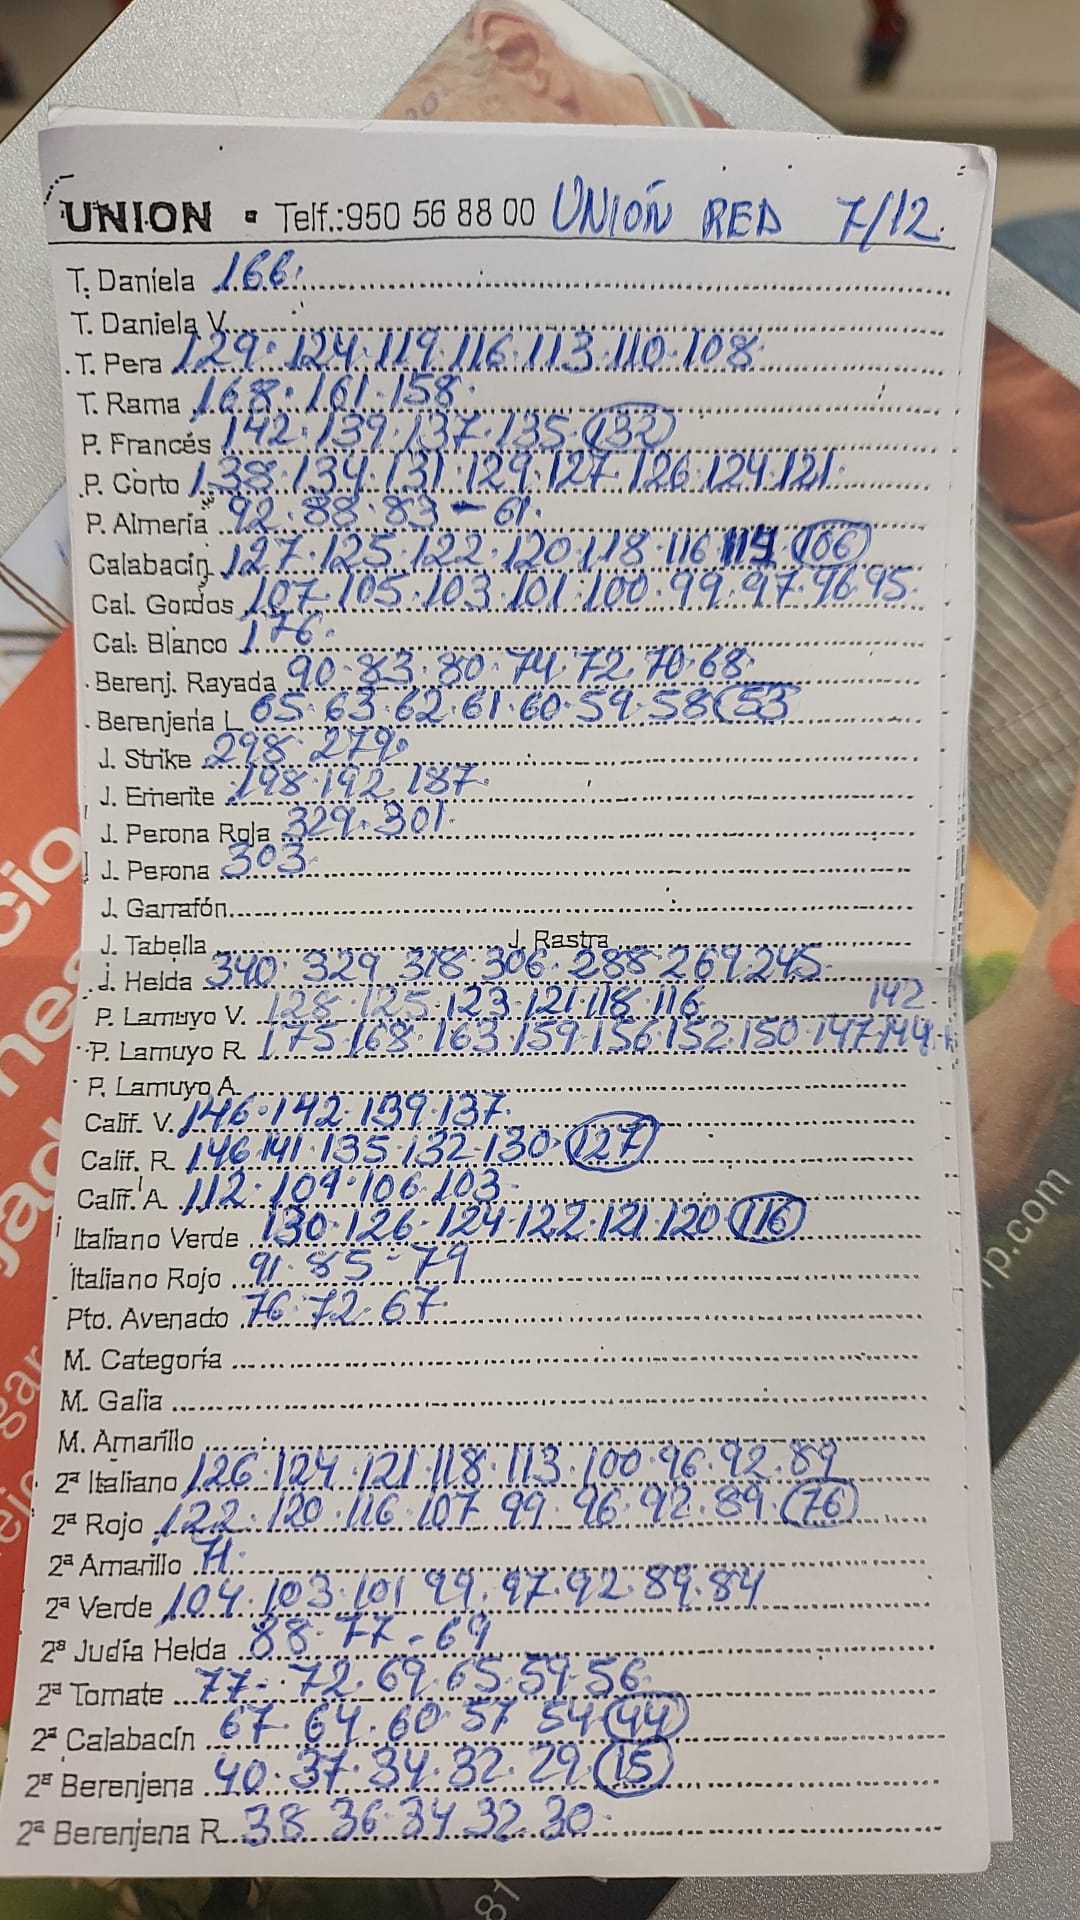 UNION • Telf.:950 56 88 00 UNIÓN RED 7/12.
T. Daniela 166.
T. Daniela V.
T. Pera 129. 124. 119. 116. 113. 110. 108.
T. Rama 168. 161. 158.
P. Francés 142. 139. 137. 135. 132
P. Corto 138. 134. 131. 129. 127. 126. 124. 121.
P. Almería 92. 88. 83 - 61.
Calabacín 127. 125. 122. 120. 118. 116 106
Cal. Gordos 107. 105. 103. 101. 100. 99. 97. 96. 95.
Cal. Blanco 176.
Berenj. Rayada 90. 83. 80. 74. 72. 70. 68.
Berenjena L 65. 63. 62. 61. 60. 59. 58 53
J. Strike 298. 279.
J. Emerite 198. 192. 187.
J. Perona Roja 329. 301.
J. Perona 303.
J. Garrafón
J. Tabella J. Rastra
J. Helda 340. 329 318. 306. 288. 269. 245.
P. Lamuyo V. 128. 125. 123. 121. 118. 116 142
P. Lamuyo R. 175. 168. 163. 159. 156. 152. 150. 147. 144.
P. Lamuyo A.
Calif. V. 146. 142. 139. 137.
Calif. R. 146. 141. 135. 132. 130. 127
Calif. A. 112. 109. 106. 103
Italiano Verde 130. 126. 124. 122. 121. 120 116
Italiano Rojo 91. 85 - 79
Pto. Avenado 76. 72. 67.
M. Categoría
M. Galia
M. Amarillo
2ª Italiano 126. 124. 121. 118. 113. 100. 96. 92. 89
2ª Rojo 122. 120. 116. 107 99. 96. 92. 89. 76
2ª Amarillo 71.
2ª Verde 104. 103. 101 99. 97. 92. 89. 84
2ª Judía Helda 88. 77 - 69
2ª Tomate 77. 72. 69. 65. 59. 56.
2ª Calabacín 67. 64. 60. 57 54 44
2ª Berenjena 40. 37. 34. 32. 29. 15
2ª Berenjena R. 38 36. 34 32. 30.
rp.com